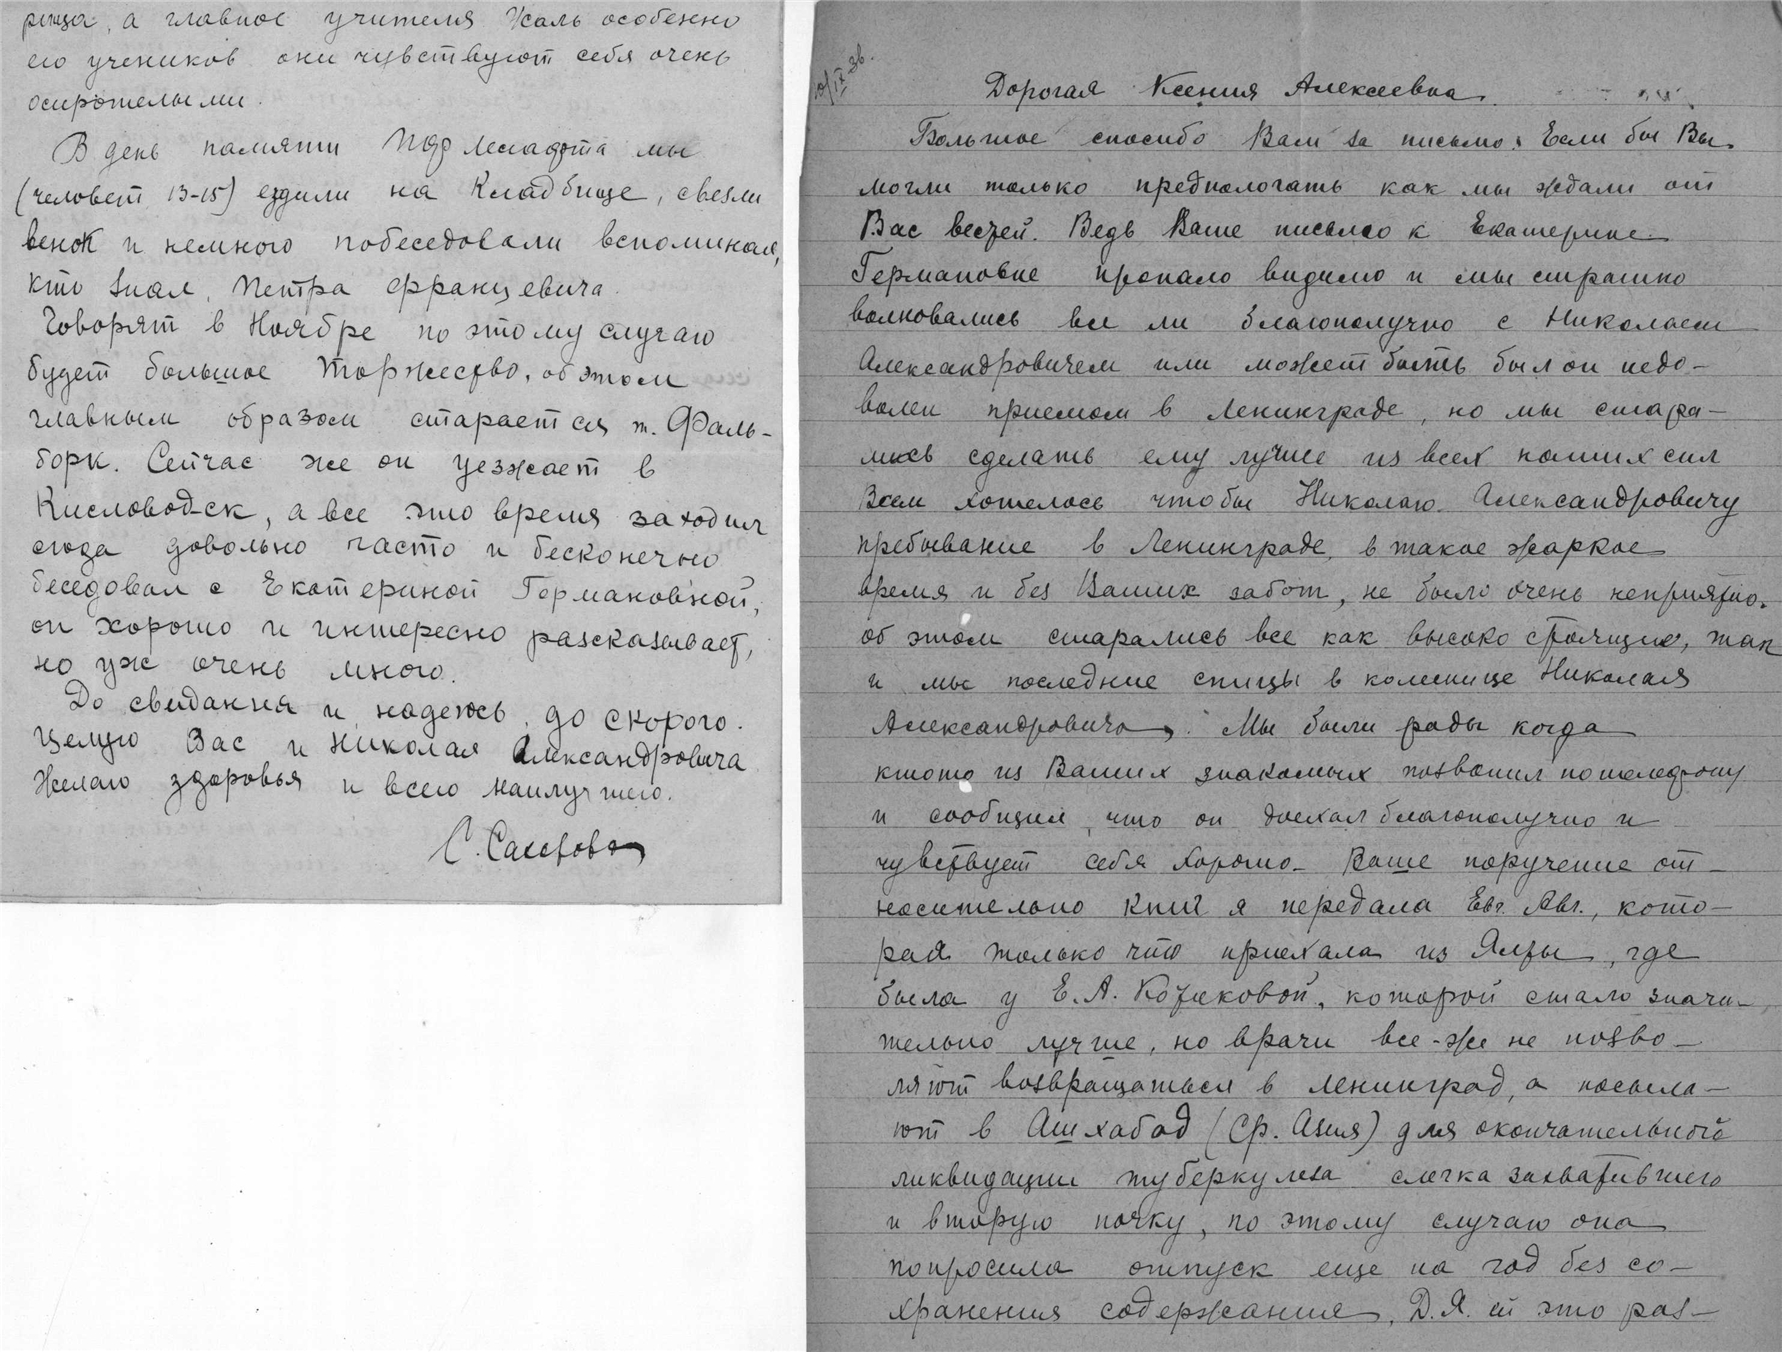 рища, а главное учителя Жаль особенно
его учеников они чувствуют себя очень
осиротелыми.
В день памяти Лесгафта мы
(человек 13-15) ездили на Кладбище, свезли
венок и немного побеседовали вспоминая,
кто знал, Петра Францевича.
Говорят в Ноябре по этому случаю
будет большое торжество, об этом
главным образом старается т. Фаль-
борк. Сейчас же он уезжает в
Кисловодск, а все это время заходил
сюда довольно часто и бесконечно
беседовал с Екатериной Германовной,
он хорошо и интересно разсказывает,
но уж очень много.
До свидания и, надеюсь, до скорого.
Целую Вас и Николая Александровича
Желаю здоровья и всего наилучшего.
10/IX 36.
Дорогая Ксения Алексеевна.
Большое спасибо Вам за письмо. Если бы Вы
могли только предпологать как мы ждали от
Вас вестей. Ведь Ваше письмо к Екатерине
Германовне пропало видимо и мы страшно
волновались все ли благополучно с Николаем
Александровичем или может быть был он недо-
волен приемом в Ленинграде, но мы стара-
лись сделать ему лучше из всех наших сил
Всем хотелось чтобы Николаю Александровичу
пребывание в Ленинграде, в такое жаркое
время и без Ваших забот, не было очень неприятно.
об этом старались все как высоко стоящие, так
и мы последние спицы в колеснице Николая
Александровича. Мы были рады когда
ктото из Ваших знакомых позвонил по телефону
и сообщил, что он доехал благополучно и
чувствует себя хорошо. Ваше поручение от-
носительно книг я передала Евг. Авг., кото-
рая только что приехала из Ялты, где
была у Е.А. которой стало значи-
тельно лучше, но врачи все-же не позво-
ляют возвращаться в Ленинград, а посыла-
ют в Ашхабад (Ср. Азия) для окончательной
ликвидации туберкулеза слегка захватившего
и вторую почку, по этому случаю она
попросила отпуск еще на год без со-
хранения содержания, Д.Я. ей это раз-